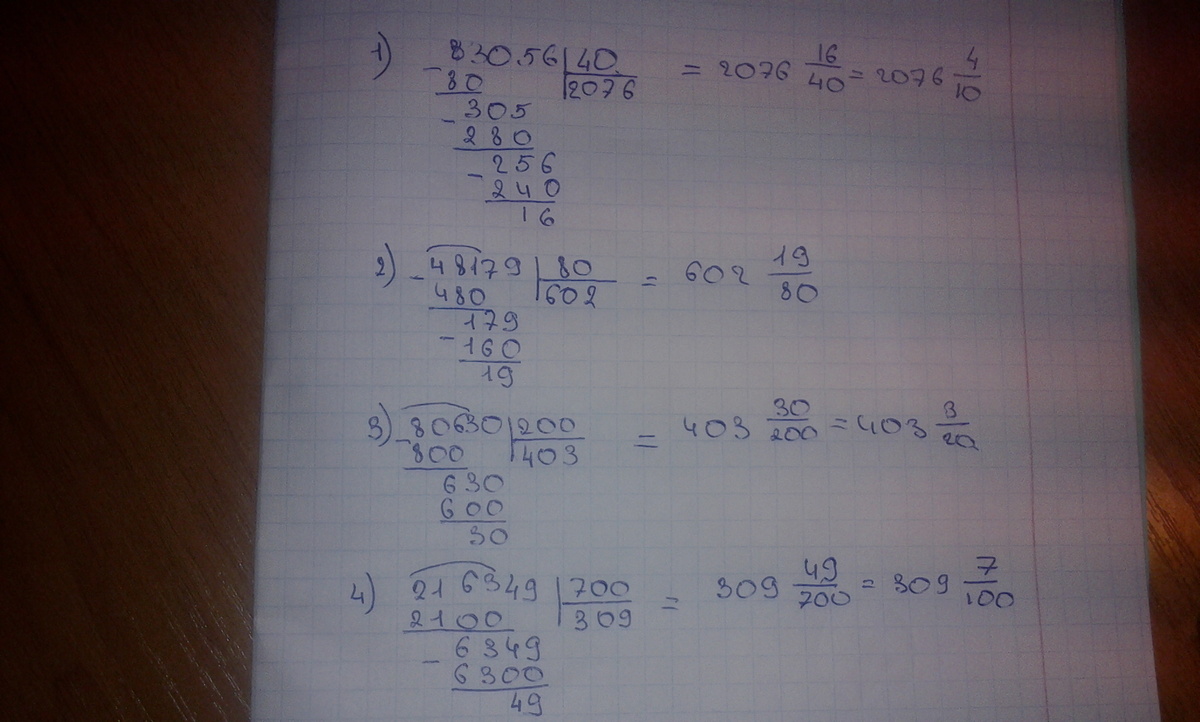 1) - 83056 | 40 = 2076 16/40 = 2076 4/10
80 | 2076
- 305
280
- 256
240
16
2) - 48179 | 80 = 602 19/80
480 | 602
- 179
160
19
3) - 80630 | 200 = 403 30/200 = 403 3/20
800 | 403
630
600
30
4) 216349 | 700 = 309 49/700 = 309 7/100
2100 | 309
- 6349
6300
49